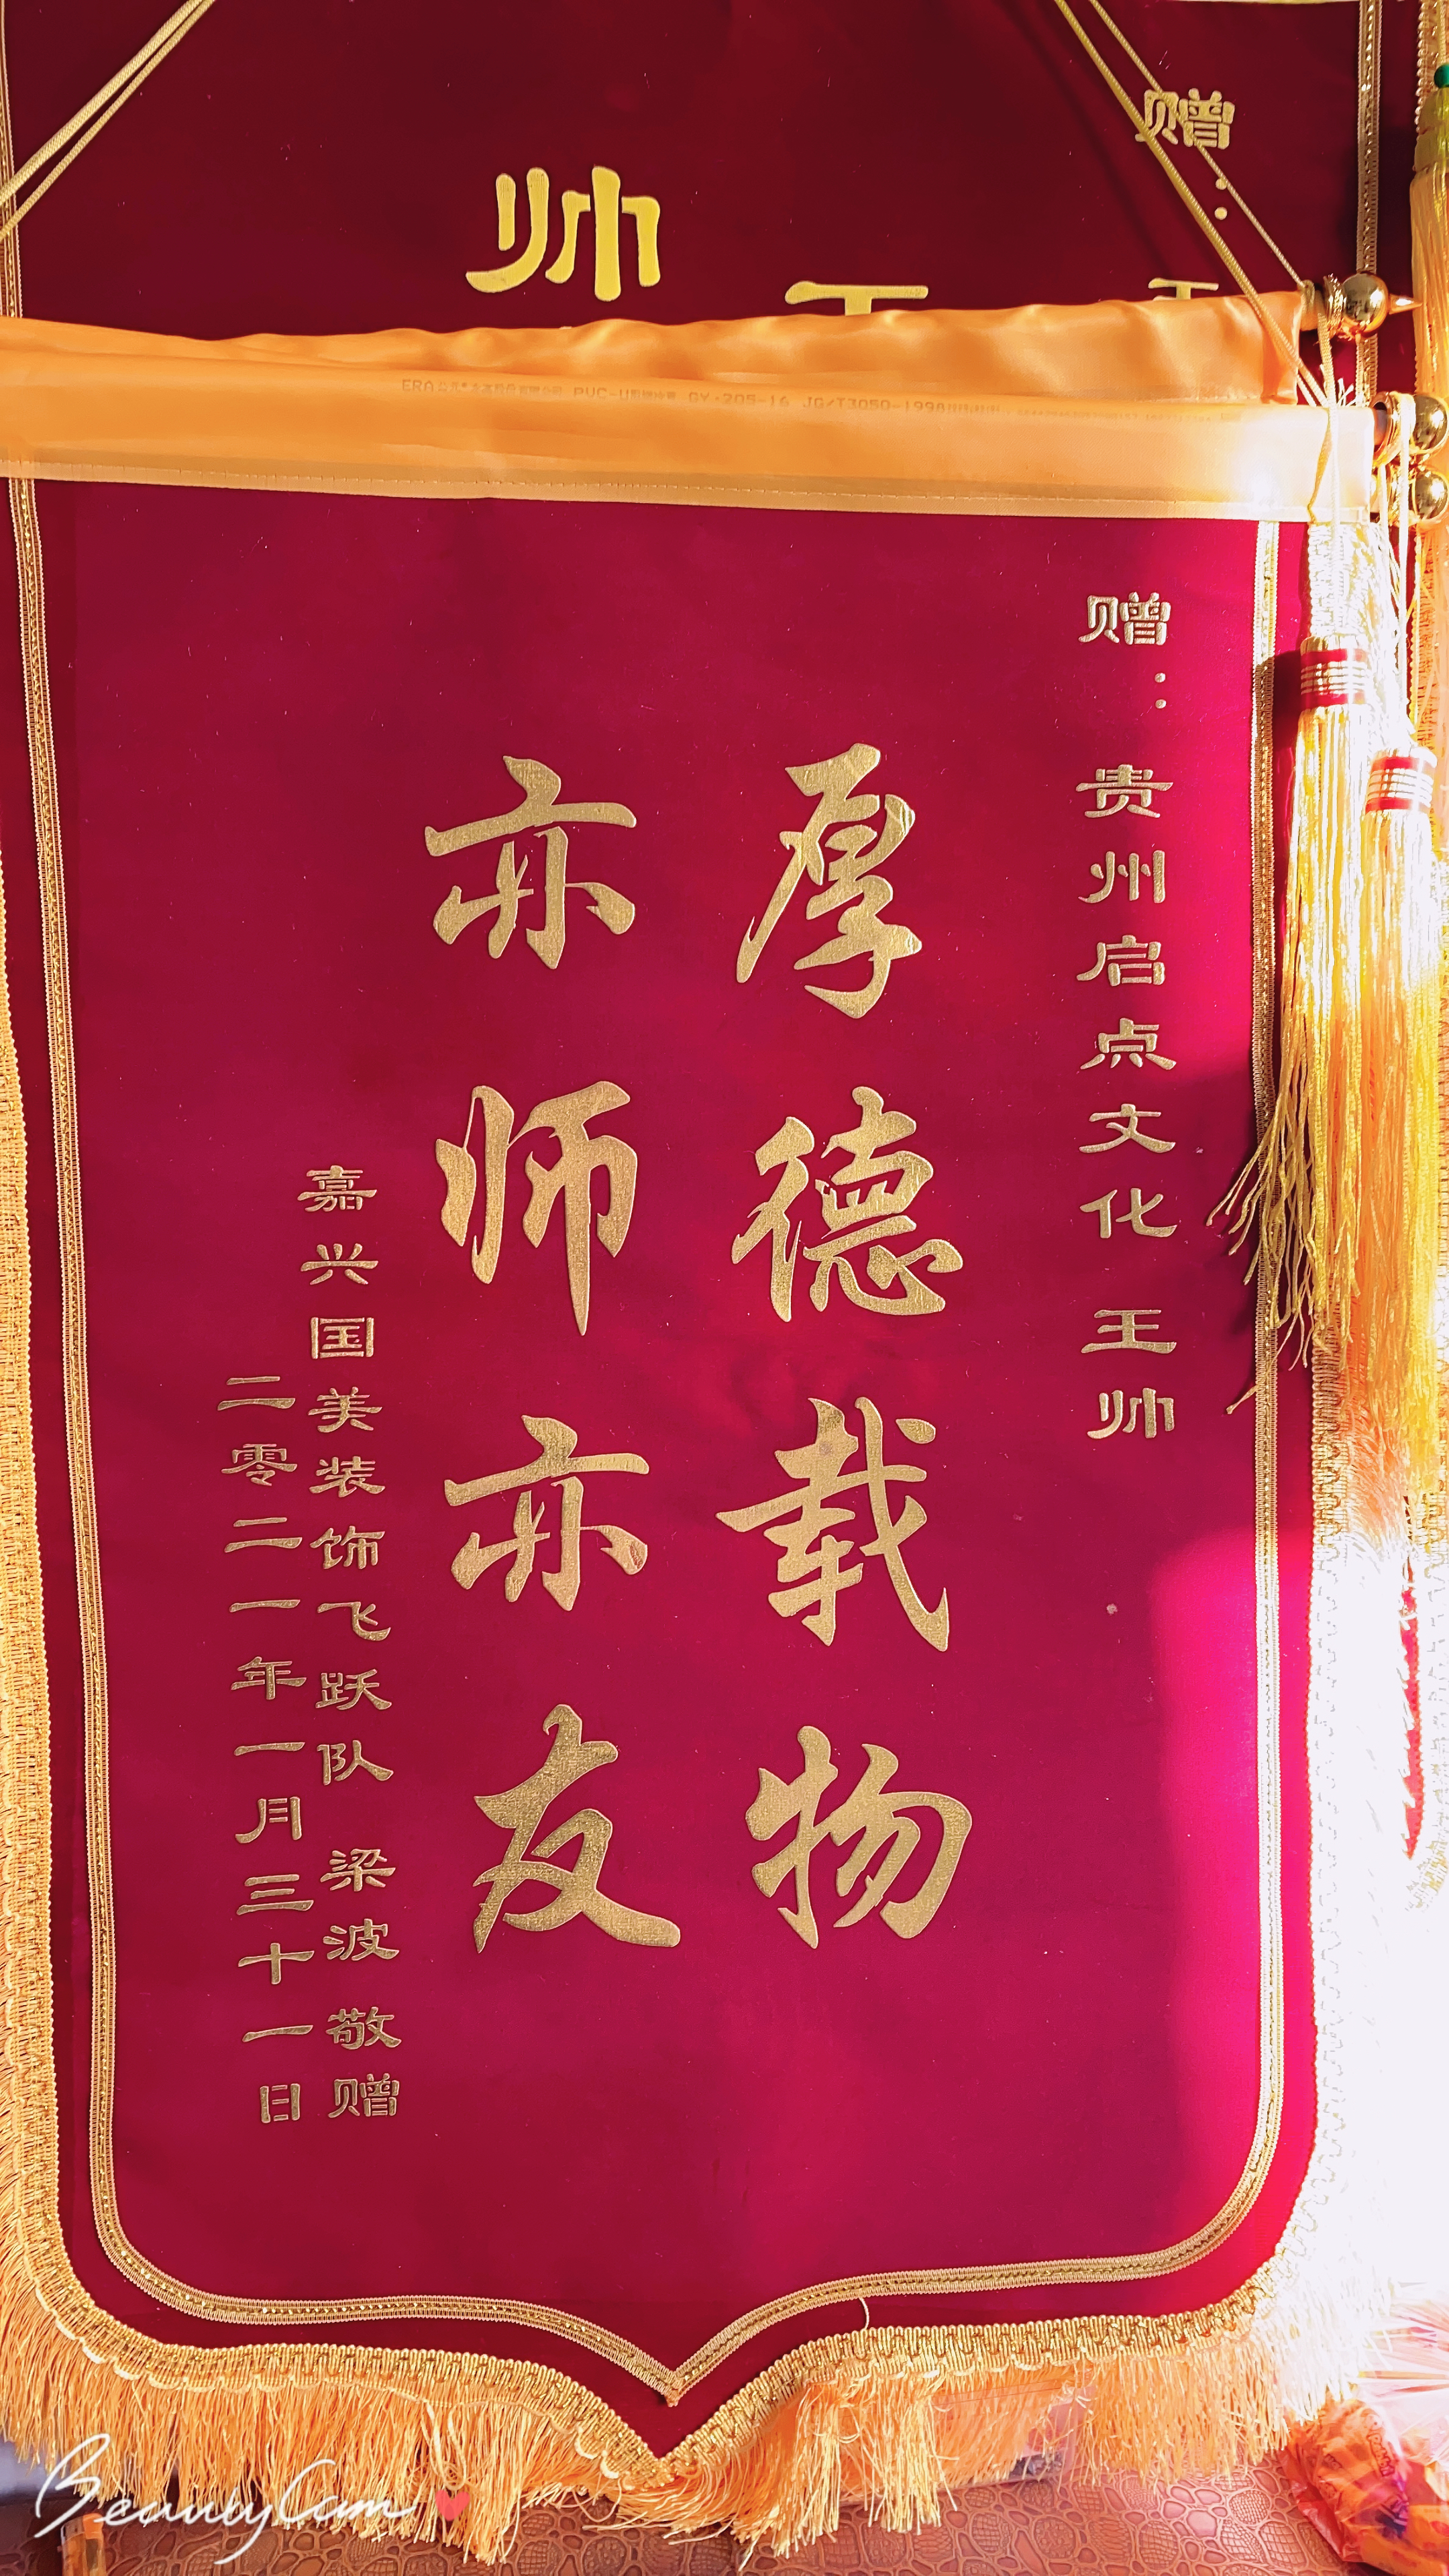 赠：
帅
赠：贵州启点文化 王帅
厚德载物
亦师亦友
嘉兴国美装饰飞跃队 梁波 敬赠
二零二一年一月三十一日
ERA
PVC-U
GY·205-16 JG/T3050-1998
BeautyCam